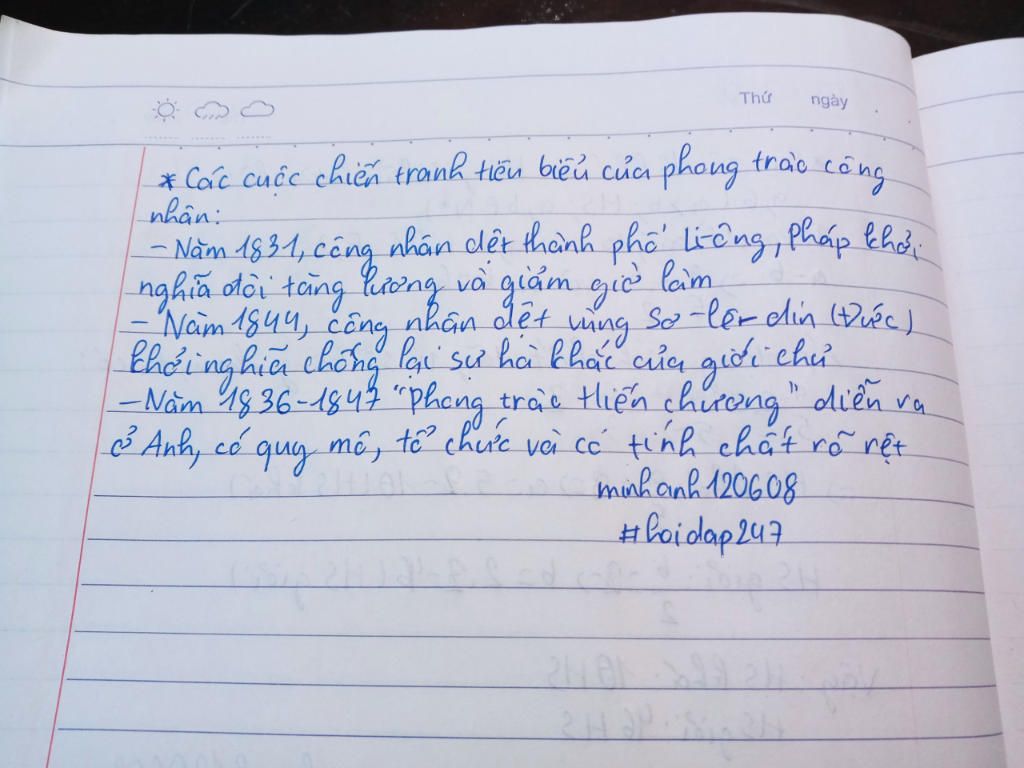 Thứ ngày
* Các cuộc chiến tranh tiêu biểu của phong trào công
nhân:
- Năm 1831, công nhân dệt thành phố Li-ông, Pháp khởi
nghĩa đòi tăng lương và giảm giờ làm
- Năm 1844, công nhân dệt vùng Sơ-lê-din (Đức)
khởi nghĩa chống lại sự hà khắc của giới chủ
- Năm 1836-1847 "Phong trào Hiến chương" diễn ra
ở Anh, có quy mô, tổ chức và có tính chất rõ rệt
minhanh120608
#hoidap247